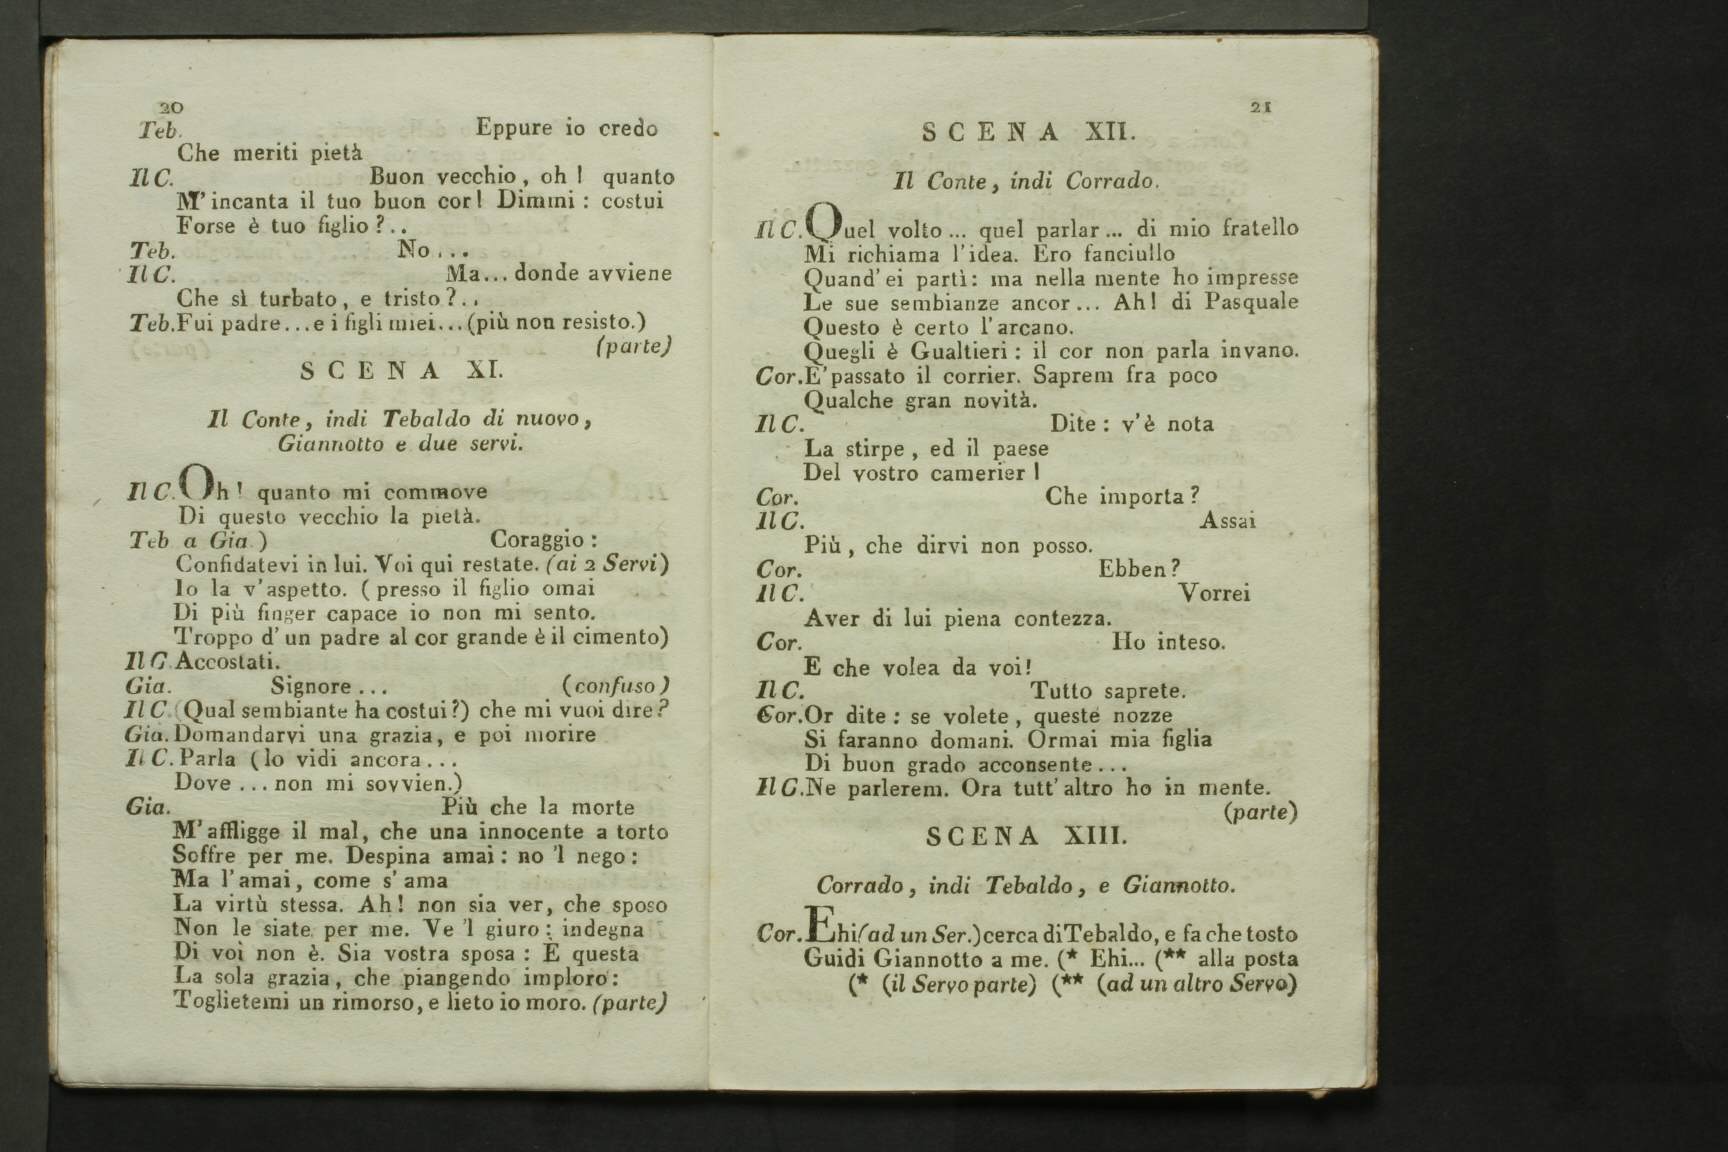 20
Teb. Eppure io credo
Che meriti pietà
Il C. Buon vecchio, oh! quanto
M'incanta il tuo buon cor! Dimmi: costui
Forse è tuo figlio?..
Teb. No...
Il C. Ma... donde avviene
Che sì turbato, e tristo?..
Teb. Fui padre...e i figli miei...(più non resisto.)
(parte)
SCENA XI.
Il Conte, indi Tebaldo di nuovo,
Giannotto e due servi.
Il C. Oh! quanto mi commove
Di questo vecchio la pietà.
Teb a Gia.) Coraggio:
Confidatevi in lui. Voi qui restate. (ai 2 Servi)
Io la v'aspetto. (presso il figlio omai
Di più finger capace io non mi sento.
Troppo d'un padre al cor grande è il cimento)
Il C. Accostati.
Gia. Signore... (confuso)
Il C. (Qual sembiante ha costui?) che mi vuoi dire?
Gia. Domandarvi una grazia, e poi morire
Il C. Parla (lo vidi ancora...
Dove...non mi sovvien.)
Gia. Più che la morte
M'affligge il mal, che una innocente a torto
Soffre per me. Despina amai: no 'l nego:
Ma l'amai, come s'ama
La virtù stessa. Ah! non sia ver, che sposo
Non le siate per me. Ve 'l giuro: indegna
Di voi non è. Sia vostra sposa: È questa
La sola grazia, che piangendo imploro:
Toglietemi un rimorso, e lieto io moro. (parte)
21
SCENA XII.
Il Conte, indi Corrado.
Il C. Quel volto... quel parlar... di mio fratello
Mi richiama l'idea. Ero fanciullo
Quand'ei partì: ma nella mente ho impresse
Le sue sembianze ancor... Ah! di Pasquale
Questo è certo l'arcano.
Quegli è Gualtieri: il cor non parla invano.
Cor. E' passato il corrier. Saprem fra poco
Qualche gran novità.
Il C. Dite: v'è nota
La stirpe, ed il paese
Del vostro camerier!
Cor. Che importa?
Il C. Assai
Più, che dirvi non posso.
Cor. Ebben?
Il C. Vorrei
Aver di lui piena contezza.
Cor. Ho inteso.
E che volea da voi!
Il C. Tutto saprete.
Cor. Or dite: se volete, queste nozze
Si faranno domani. Ormai mia figlia
Di buon grado acconsente...
Il C. Ne parlerem. Ora tutt'altro ho in mente.
(parte)
SCENA XIII.
Corrado, indi Tebaldo, e Giannotto.
Cor. Ehi (ad un Ser.) cerca di Tebaldo, e fa che tosto
Guidi Giannotto a me. (* Ehi... (** alla posta
(* (il Servo parte) (** (ad un altro Servo)